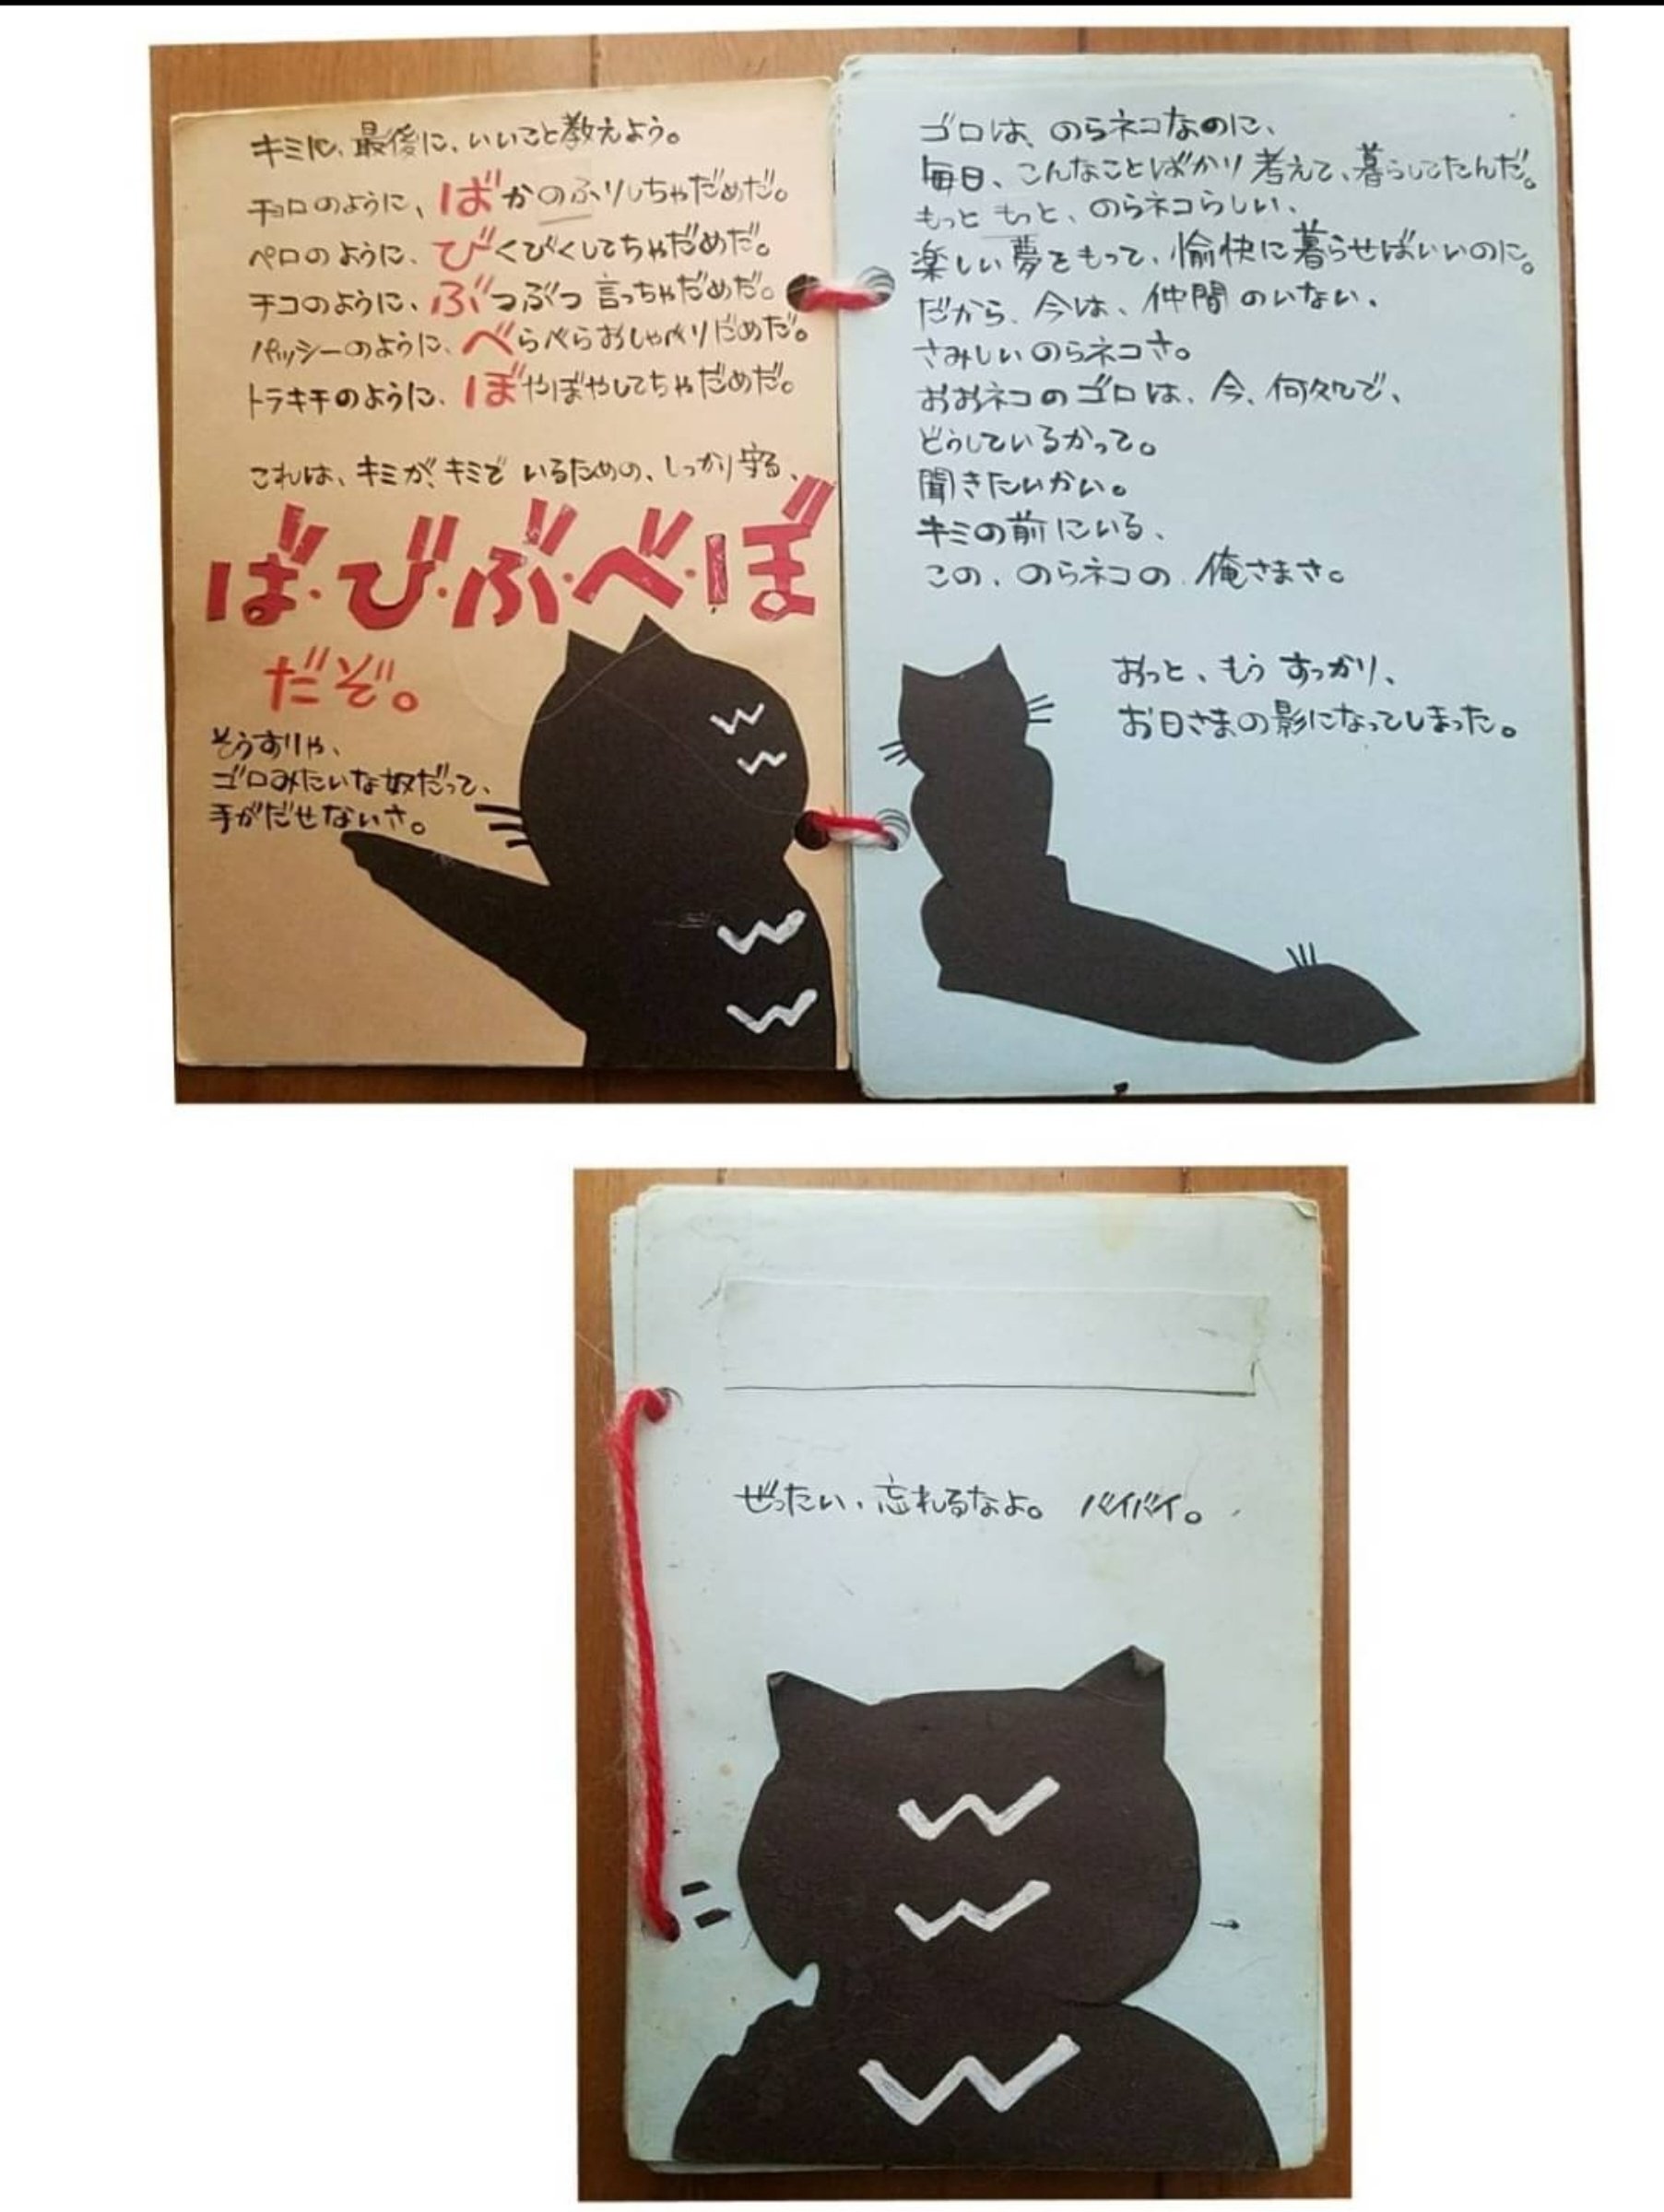 キミに、最後に、いいこと教えよう。
チョロのように、ばかのふりしちゃだめだ。
ペロのように、びくびくしてちゃだめだ。
チコのように、ぶつぶつ言っちゃだめだ。
パッシーのように、べらべらおしゃべりだめだ。
トラキチのように、ぼやぼやしてちゃだめだ。
これは、キミが、キミでいるための、しっかり守る、
ば・び・ぶ・べ・ぼ
だぞ。
そうすりゃ、
ゴロみたいな奴だって、
手がだせないさ。
ゴロは、のらネコなのに、
毎日、こんなことばかり考えて、暮らしてたんだ。
もっともっと、のらネコらしい、
楽しい夢をもって、愉快に暮らせばいいのに。
だから、今は、仲間のいない、
さみしいのらネコさ。
おおネコのゴロは、今、何処で、
どうしているかって。
聞きたいかい。
キミの前にいる、
この、のらネコの、俺さまさ。
おっと、もうすっかり、
お日さまの影になってしまった。
ぜったい、忘れるなよ。バイバイ。